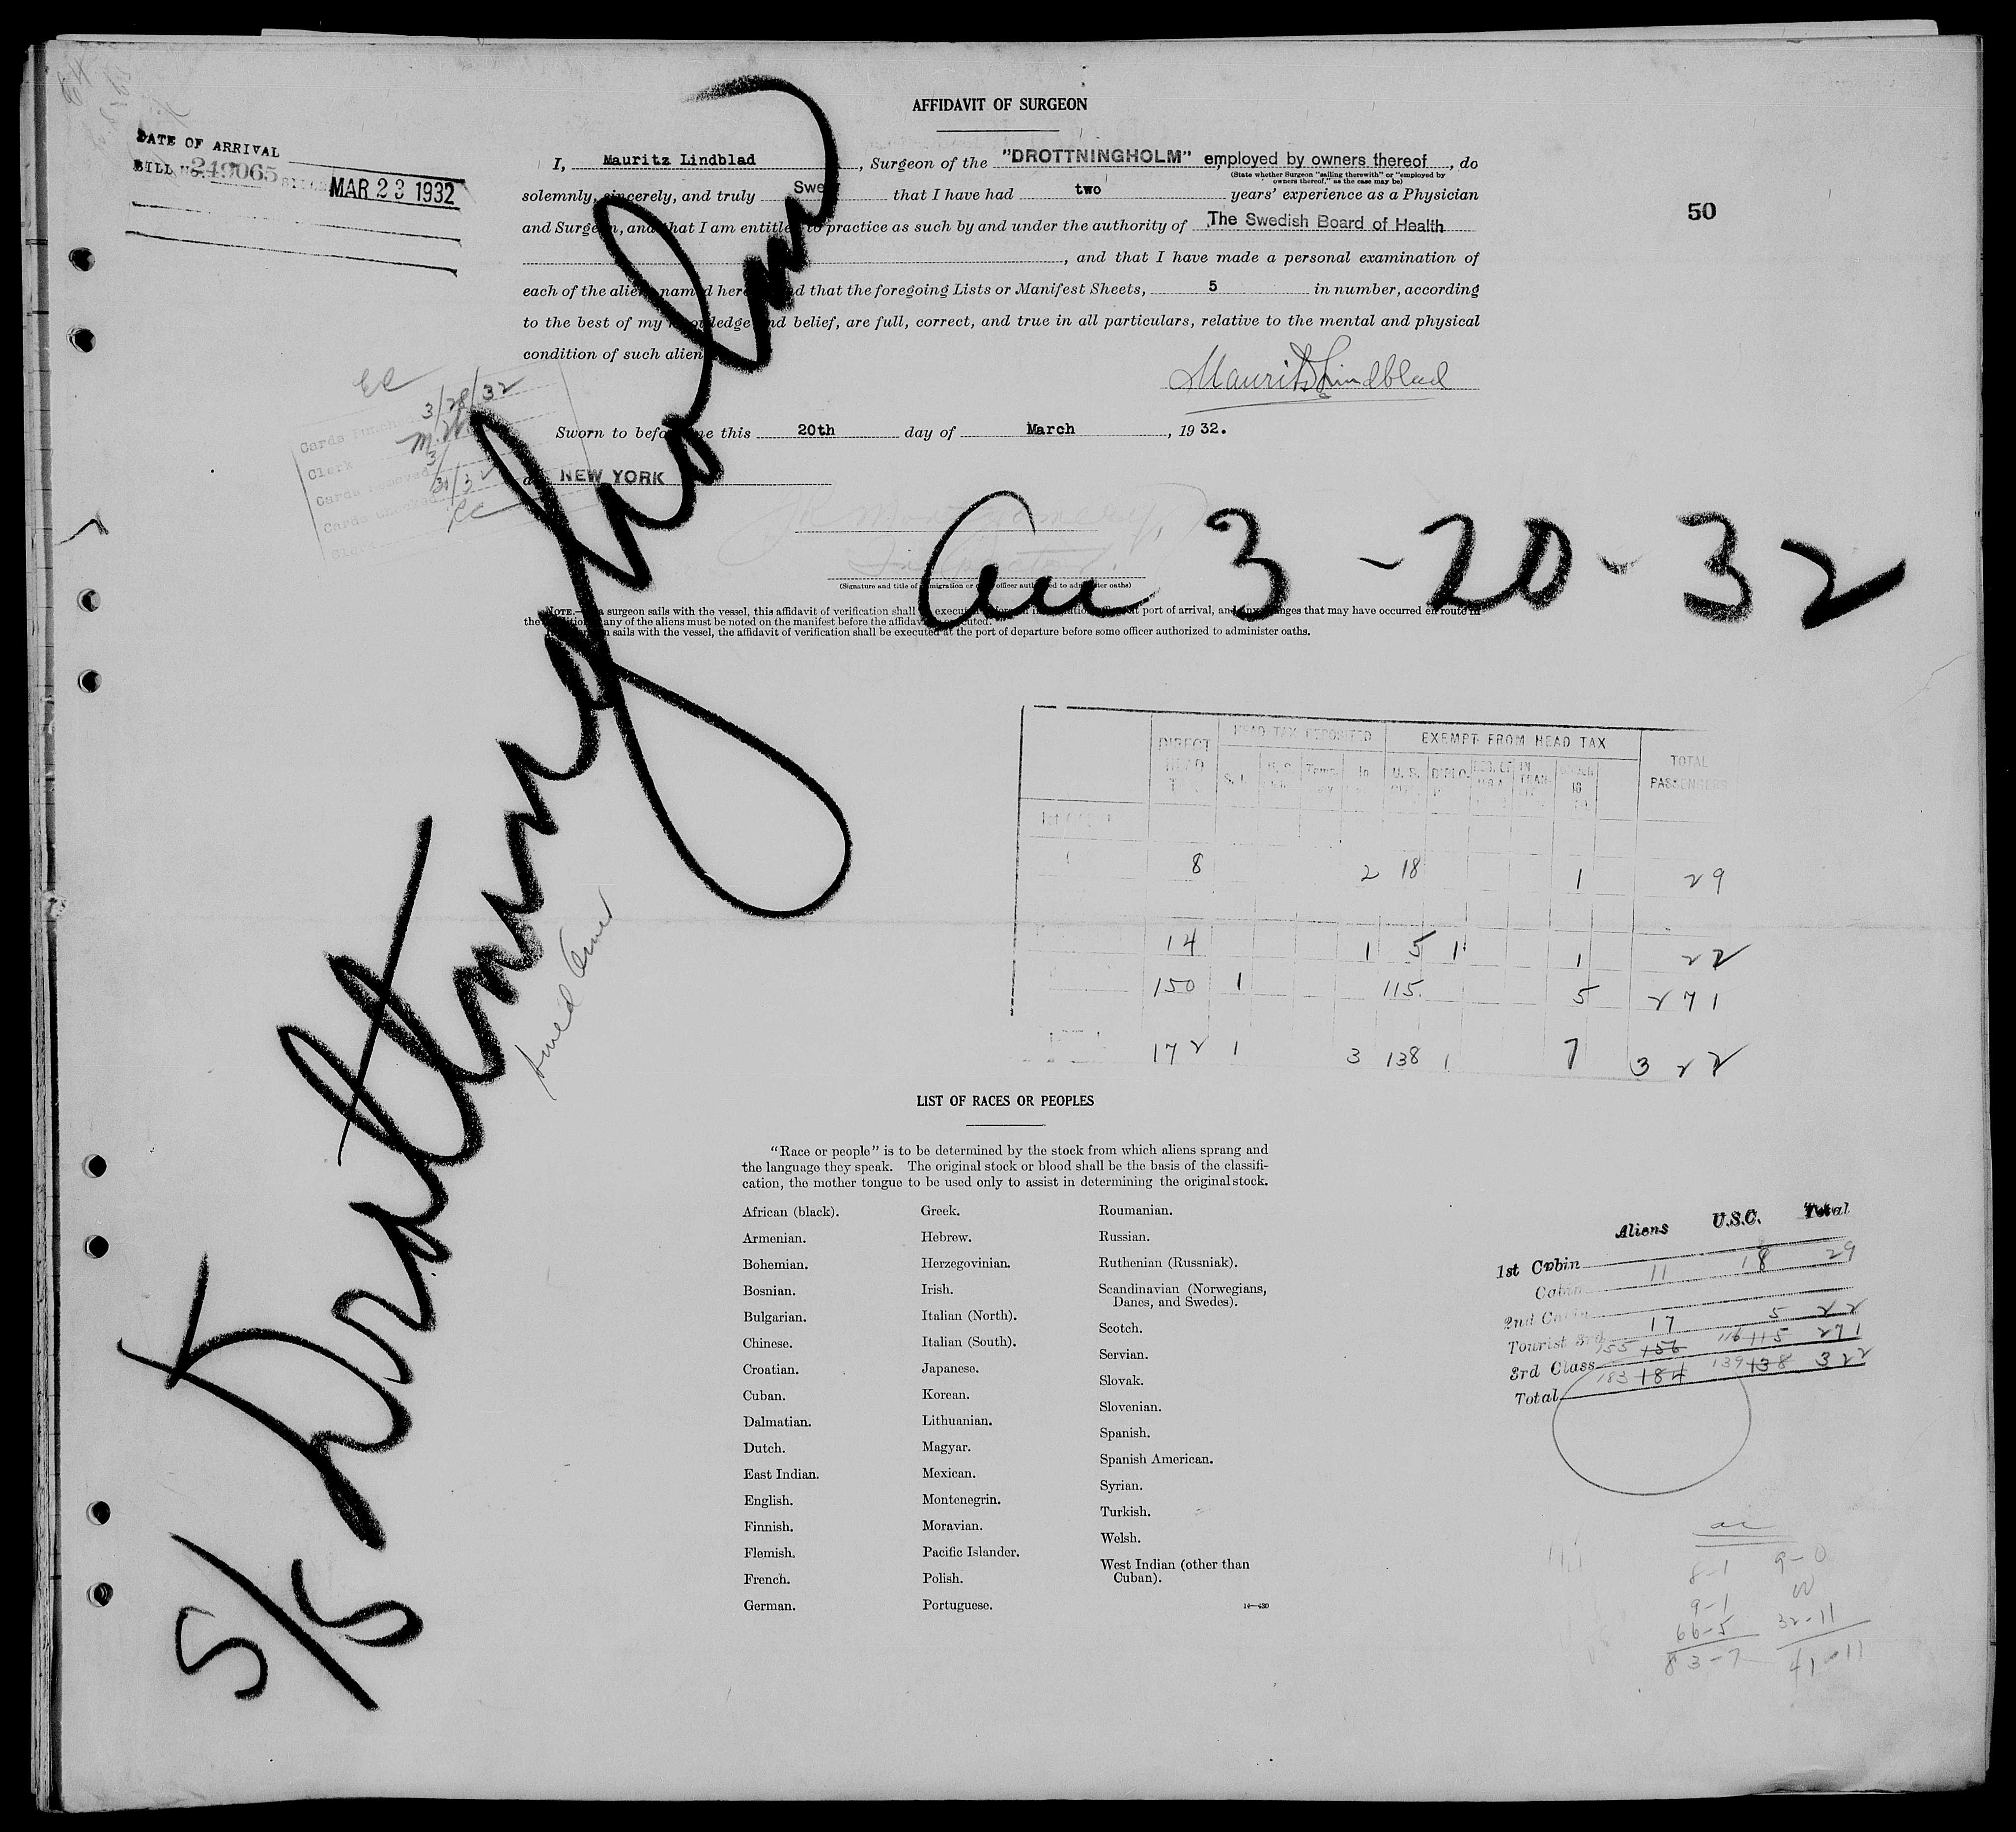 AFFIDAVIT OF SURGEON
DATE OF ARRIVAL
BILL No. 249065 MAR 23 1932
I, Mauritz Lindblad, Surgeon of the "DROTTNINGHOLM" employed by owners thereof, do
(State whether Surgeon "sailing therewith" or "employed by
owners thereof," as the case may be)
solemnly, sincerely, and truly Swear that I have had two years' experience as a Physician
and Surgeon, and that I am entitled to practice as such by and under the authority of The Swedish Board of Health
, and that I have made a personal examination of
each of the aliens named herein and that the foregoing Lists or Manifest Sheets, 5 in number, according
to the best of my knowledge and belief, are full, correct, and true in all particulars, relative to the mental and physical
condition of such aliens.
50
Mauritz Lindblad
Sworn to before me this 20th day of March, 1932.
at NEW YORK
Inspector.
(Signature and title of immigration or other officer authorized to administer oaths)
NOTE.—If a surgeon sails with the vessel, this affidavit of verification shall be executed before an immigration officer at port of arrival, and any changes that may have occurred en route in
the condition of any of the aliens must be noted on the manifest before the affidavit is executed.
If no surgeon sails with the vessel, the affidavit of verification shall be executed at the port of departure before some officer authorized to administer oaths.
EC
Cards Punched 3/28/32
Clerk
Cards removed
Cards checked 3/31/32
Clerk EC
S/S Drottningholm
Arr 3-20-32
Swed Amer
DIRECT HEAD TAX
HEAD TAX DEPOSITED
EXEMPT FROM HEAD TAX
TOTAL PASSENGERS
8 2 18 1 29
14 1 5 1 1 22
150 1 115 5 271
172 1 3 138 1 7 322
LIST OF RACES OR PEOPLES
"Race or people" is to be determined by the stock from which aliens sprang and
the language they speak. The original stock or blood shall be the basis of the classifi-
cation, the mother tongue to be used only to assist in determining the original stock.
African (black).
Armenian.
Bohemian.
Bosnian.
Bulgarian.
Chinese.
Croatian.
Cuban.
Dalmatian.
Dutch.
East Indian.
English.
Finnish.
Flemish.
French.
German.
Greek.
Hebrew.
Herzegovinian.
Irish.
Italian (North).
Italian (South).
Japanese.
Korean.
Lithuanian.
Magyar.
Mexican.
Montenegrin.
Moravian.
Pacific Islander.
Polish.
Portuguese.
Roumanian.
Russian.
Ruthenian (Russniak).
Scandinavian (Norwegians,
Danes, and Swedes).
Scotch.
Servian.
Slovak.
Slovenian.
Spanish.
Spanish American.
Syrian.
Turkish.
Welsh.
West Indian (other than
Cuban).
14—430
Aliens U.S.C. Total
1st Cabin 11 18 29
Cabin
2nd Cabin
Tourist 3rd 17 5 22
3rd Class 155 156 116 115 271
Total 183 184 139 138 322
8-1 9-0
9-1
66-5 32-11
83-7 41-11